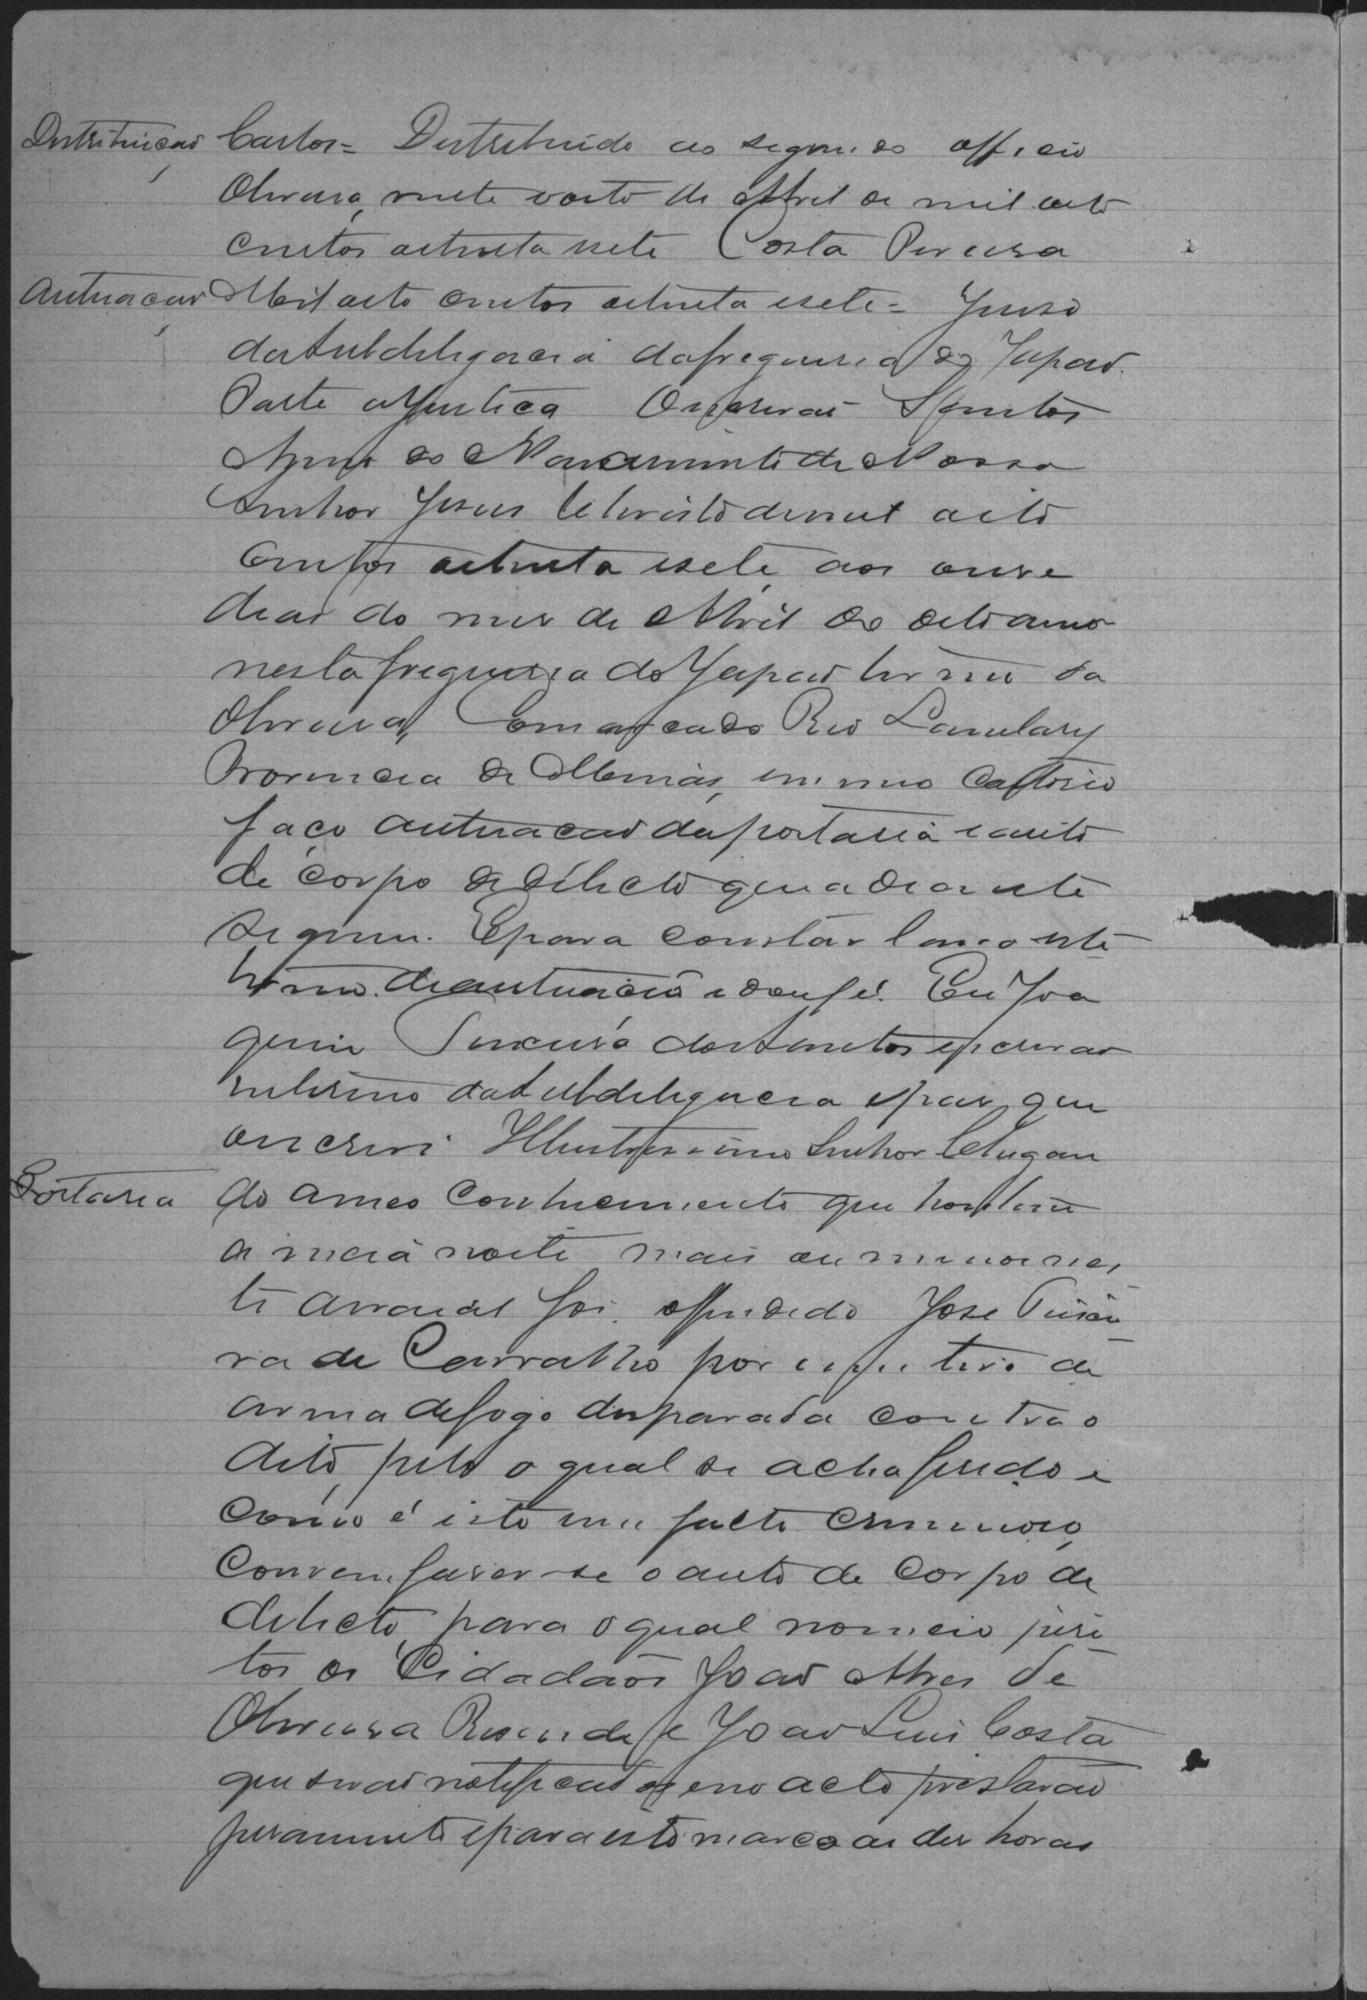 Distribuição Carlos = Destribuido ao segundo officio
Oliveira, vinte oito de Abril de mil oito
centos oitenta sete Costa Pereira
Autuação Mil oito centos oitenta esete = Juiso
da Subdelegacia da freguesia do Japão.
Parte aJustica Oescrivão Santos
Anno do Nascimento de Nosso
Senhor Jesus Christo de mil oito
centos oitenta esete, aos onse
dias do mes de Abril do dito anno
nesta freguesia do Japão termo da
Oliveira, Comarca do Rio Lambary
Provincia de Minas, em meo Cartorio
faço autuacão da portaria e auto
de corpo de delicto que a diante
seguem. Epara constar lanco este
termo de autuacão e dou fé. Eu Joa
quim dos Santos escrivão
interino da Subdelegacia epas que
o escrevi. Illustrissimo Senhor Chegan
Portaria do ameo conhecimento que hontem
a meia noite mais ou menos nes
te arraial foi offendido José Teixei
ra de Carvalho por um tiro de
arma defogo disparada contra o
dito, pelo o qual se acha ferido e
como é isto um facto criminoso,
convem faser-se o auto de corpo de
delicto, para o qual nomeio peri
tos os Cidadãos João Alves de
Oliveira Resende e João Luis Costa
que serão notificados e no acto prestarão
juramento epara isto marco as des horas